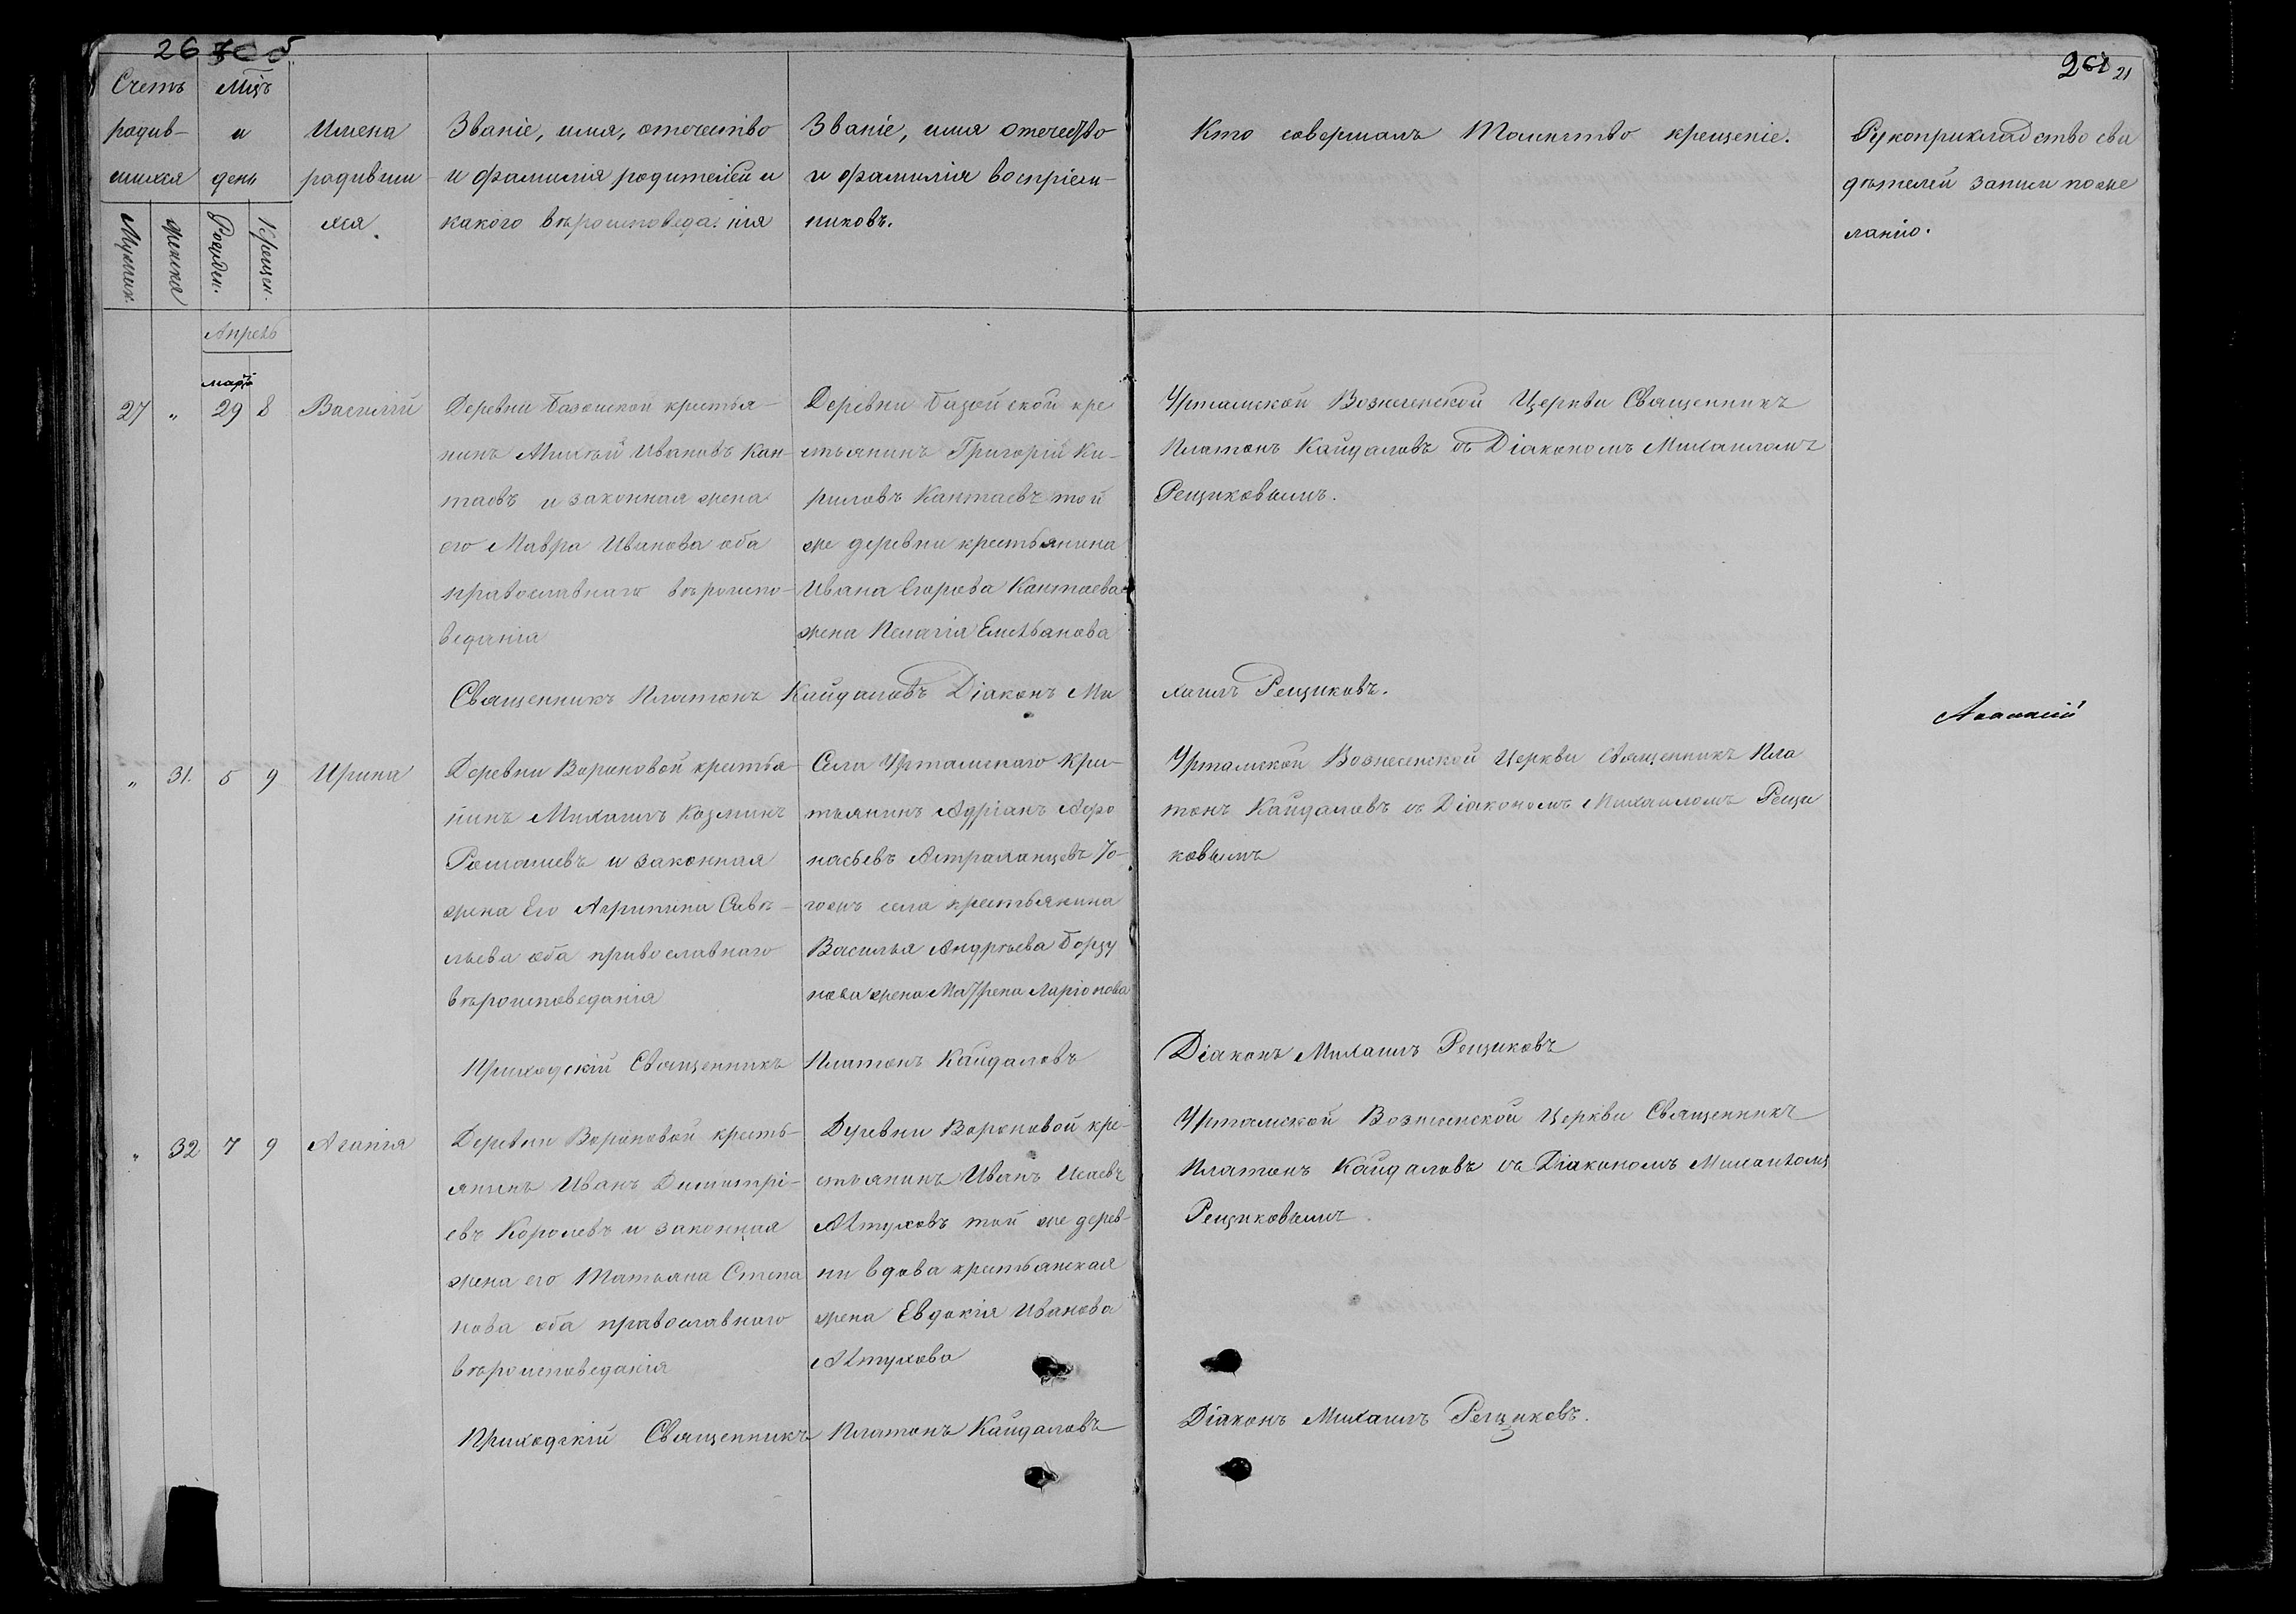 26
21
Счетъ
родив-
шихся
Мѣцъ
и
день
Имена
родивши
хся.
Званіе, имя, отечество
и фамилія родителей и
какого вѣроисповеданія
Званіе, имя отечество
и фамилія воспріем-
никовъ.
Кто совершалъ Таинство крещеніе.
Рукоприкладство сви
дѣтелей записи поже
ланію.
Мужск.
Женска
Рожден.
Крещен.
Апрель
мартъ
27 „ 29 8 Василій
Деревни Базойской крестья-
нинъ Михѣй Ивановъ Кан-
таевъ и законная жена
его Мавра Иванова оба
православнаго вѣроиспо-
веданія
Деревни Базойской кре
стьянинъ Григорій Ки-
риловъ Кантаевъ той
же деревни крестьянина
Ивана Егорова Кантаева
жена Пелагія Емельянова
Уртамской Вознесенской Церкви Священникъ
Платонъ Кайдаловъ съ Діакономъ Михаиломъ
Рещиковымъ.
Священникъ Платонъ Кайдаловъ Діаконъ Ми
хаилъ Рещиковъ.
„ 31. 5 9 Ирина
Деревни Вороновой крестья-
нинъ Михаилъ Козминъ
Ромашевъ и законная
жена Его Агрипина Савѣ-
льева оба православнаго
вѣроисповеданія
Села Уртамскаго Кре-
стьянинъ Адріанъ Афо
насьевъ Астраханцевъ То-
гожъ села крестьянина
Василья Андрѣева Борзу
нова жена Матрена Ларіонова
Уртамской Вознесенской Церкви Священникъ Пла
тонъ Кайдаловъ съ Діакономъ Михаиломъ Рещи
ковымъ
Приходскій Священникъ Платонъ Кайдаловъ
Діаконъ Михаилъ Рещиковъ
„ 32 7 9 Агапія
Деревни Вороновой кресть-
янинъ Иванъ Димитрі-
евъ Королевъ и законная
жена его Татьяна Степа
нова оба православнаго
вѣроисповеданія
Деревни Вороновой кре-
стьянинъ Иванъ Исаевъ
Алтуховъ той же дерев-
ни вдова крестьянская
жена Евдокія Иванова
Алтухова
Уртамской Вознесенской Церкви Священникъ
Платонъ Кайдаловъ съ Діакономъ Михаиломъ
Рещиковымъ
Приходскій Священникъ Платонъ Кайдаловъ
Діаконъ Михаилъ Рещиковъ.